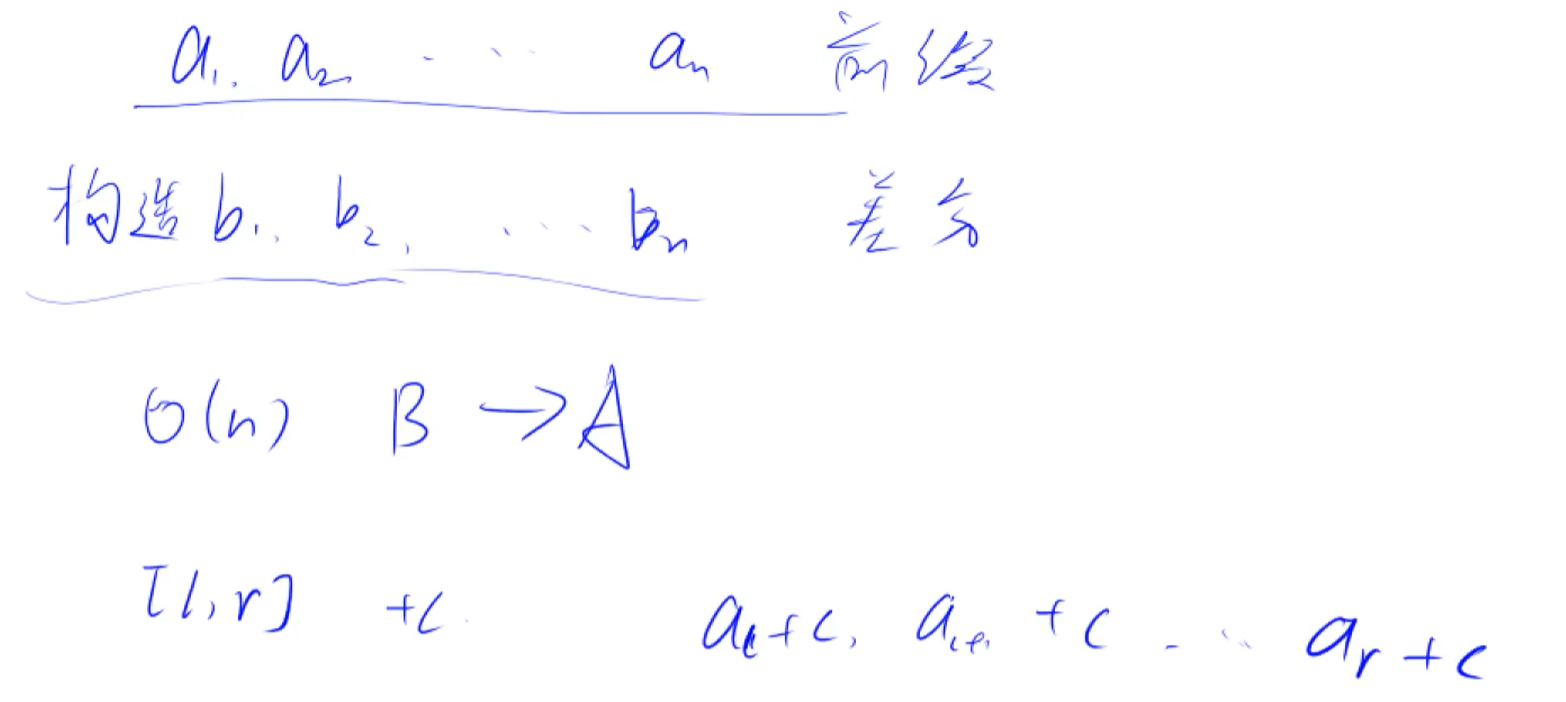 a₁, a₂, ... aₙ 前缀
构造 b₁, b₂, ... bₙ 差分
O(n) B → A
[l, r] +c. aₗ+c, aₗ₊₁+c ... aᵣ+c